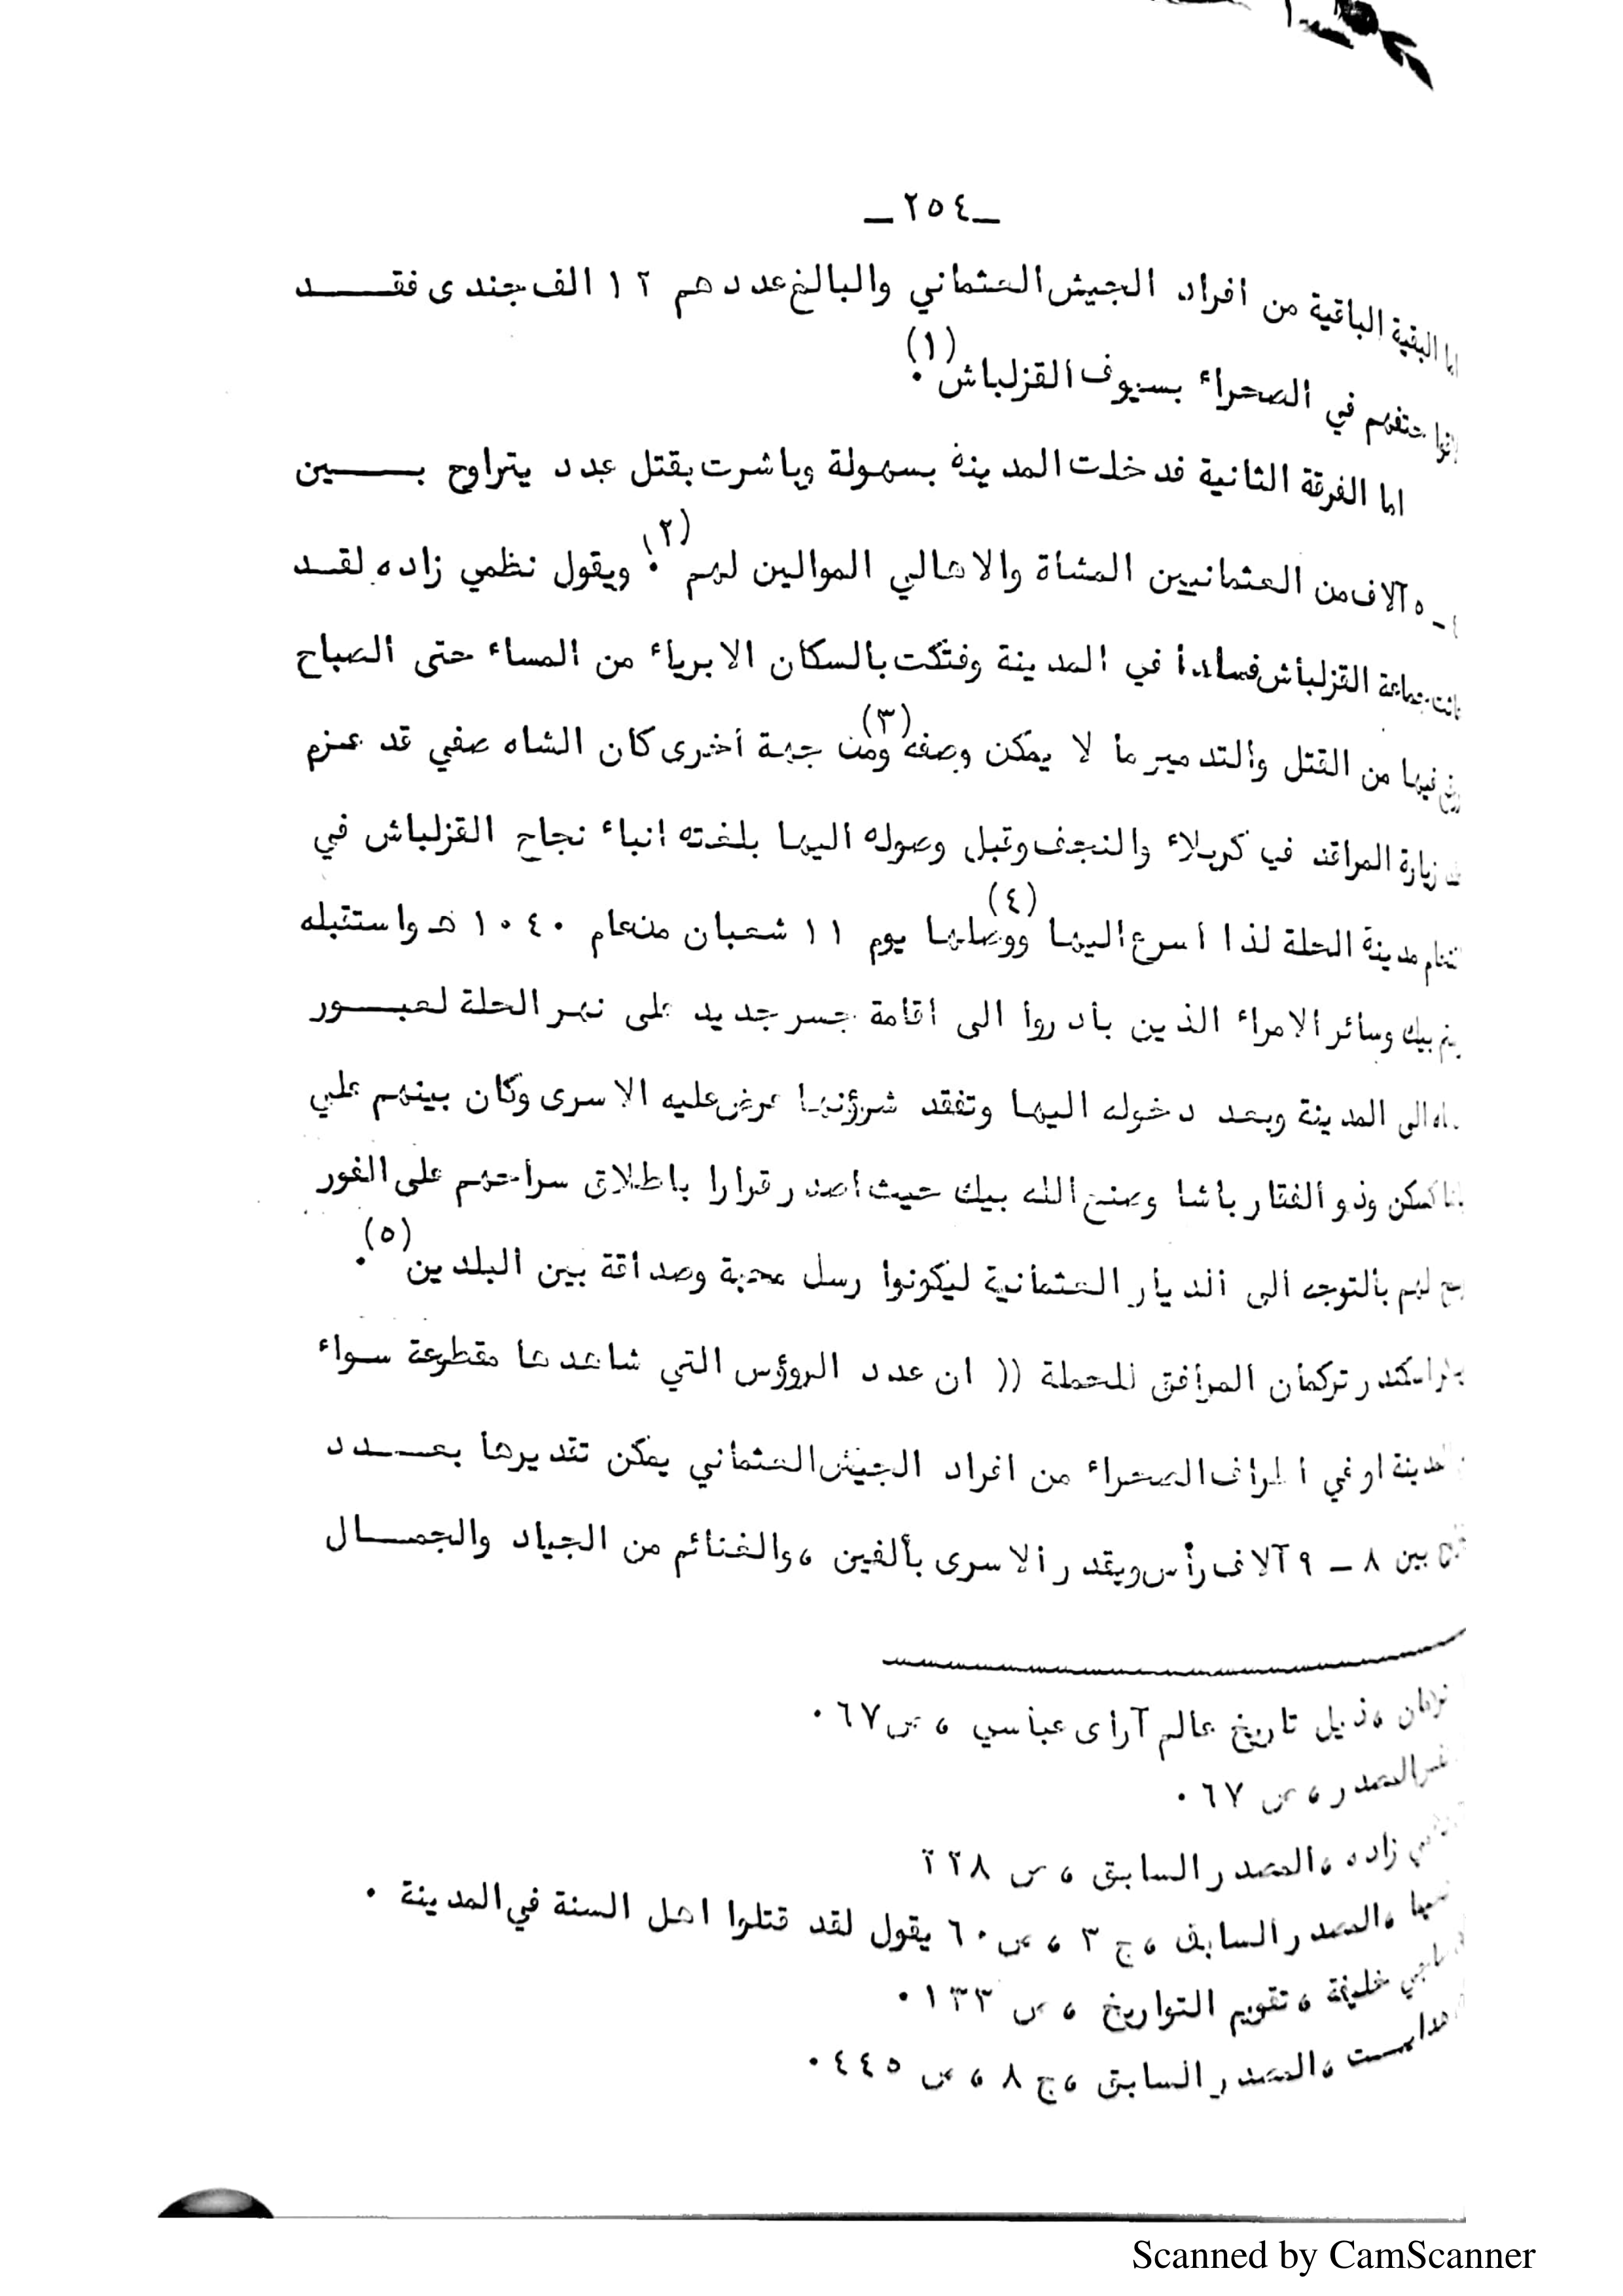 ـ ٢٥٤ ـ
اما البقية الباقية من افراد الجيش العثماني والبالغ عددهم ١٢ الف جندى فقــــد
حتفهم في الصحراء بسيوف القزلباش (١).
اما الفرقة الثانية فدخلت المدينة بسهولة وباشرت بقتل عدد يتراوح بـــــين
ـ ٥ آلاف من العثمانيين المشاة والاهالي الموالين لهم (٢). ويقول نظمي زاده لقــد
جماعة القزلباش فسادا في المدينة وفتكت بالسكان الابرياء من المساء حتى الصباح
فيها من القتل والتدمير ما لا يمكن وصفه (٣) ومن جهة أخرى كان الشاه صفي قد عزم
زيارة المراقد في كربلاء والنجف وقبل وصوله اليها بلغته انباء نجاح القزلباش في
مدينة الحلة لذا اسرع اليها (٤) ووصلها يوم ١١ شعبان من عام ١٠٤٠ هـ واستقبله
بيك وسائر الامراء الذين بادروا الى اقامة جسر جديد على نهر الحلة لعبـــور
الى المدينة وبعد دخوله اليها وتفقد شؤونها عرض عليه الاسرى وكان بينهم علي
وذو الفقار باشا وصنع الله بيك حيث اصدر قرارا باطلاق سراحهم على الفور
لهم بالتوجه الى الديار العثمانية ليكونوا رسل محبة وصداقة بين البلدين (٥).
اسكندر تركمان المرافق للحملة (( ان عدد الرؤوس التي شاهدها مقطوعة سـواء
او في اطراف الصحراء من افراد الجيش العثماني يمكن تقديرها بعـــدد
بين ٨ ـ ٩ آلاف رأس ويقدر الاسرى بألفين ، والغنائم من الجياد والجمـــال
، ذيل تاريخ عالم آراى عباسي ، ص ٦٧ .
المصدر ، ص ٦٧ .
زاده ، المصدر السابق ، ص ٢٢٨
، المصدر السابق ، ج ٣ ، ص ٦٠ يقول لقد قتلوا اهل السنة في المدينة .
خليفة ، تقويم التواريخ ، ص ١٣٣ .
، المصدر السابق ، ج ٨ ، ص ٤٤٥ .
Scanned by CamScanner